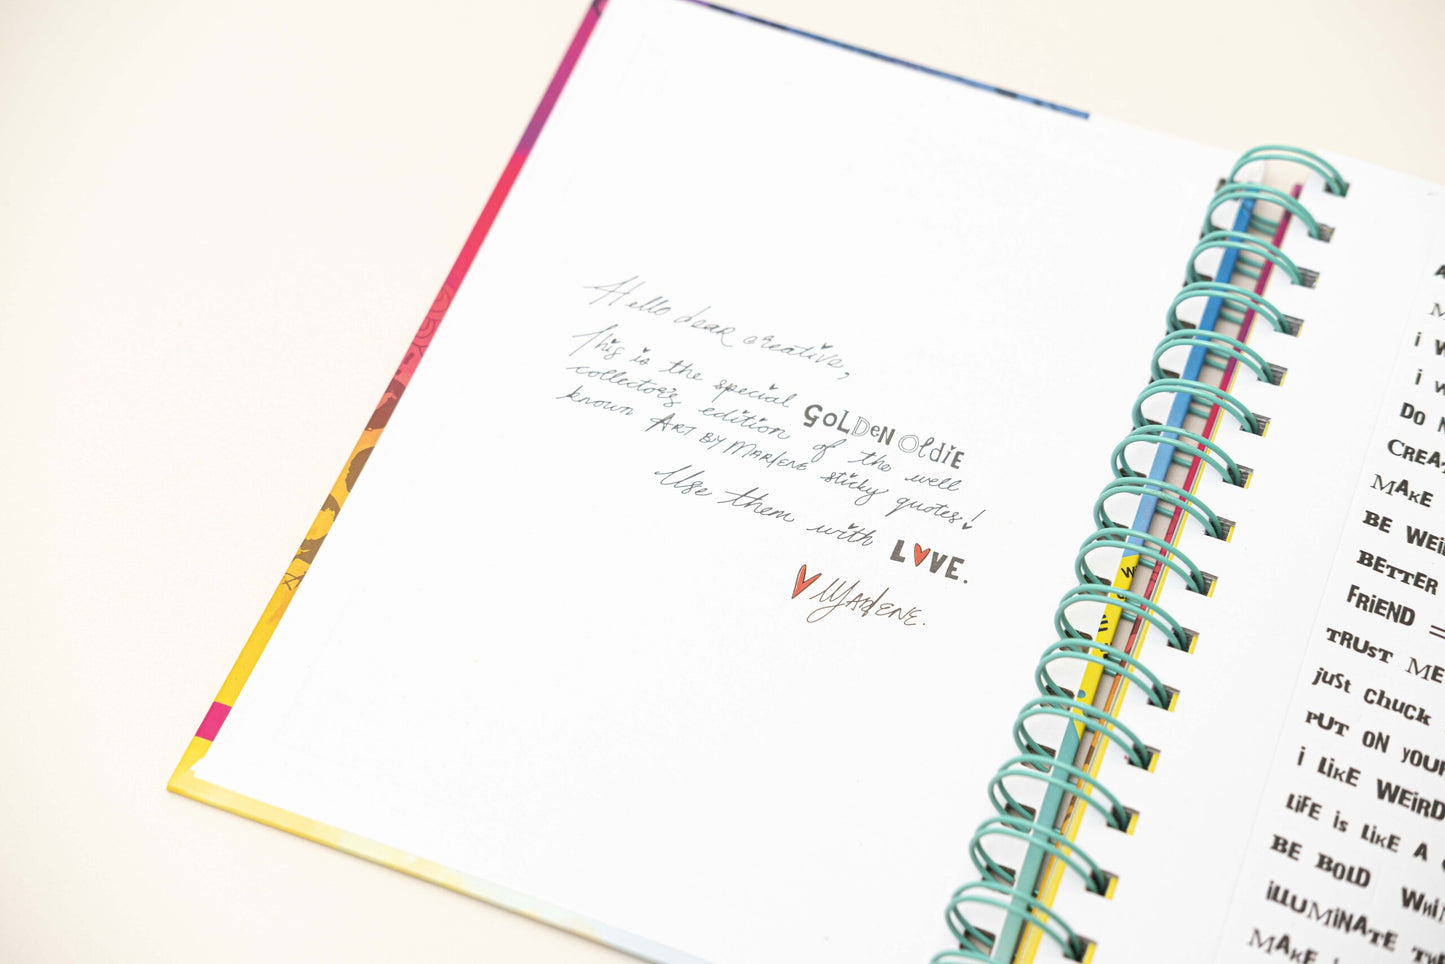 Hello dear creative,
This is the special GOLDEN OLDiE
collector's edition of the well
known ART BY MARLENE sticky quotes!
Use them with LOVE.
MARLENE.
i W
i W
DO
CREA
MAKE
BE WEi
BETTER
FRiEND =
TRUST ME
just chuck
PUT ON YOUR
i LiKE WEiRD
LiFE is LiKE A
BE BOLD WHiM
iLLUMiNATE THE
MAKE